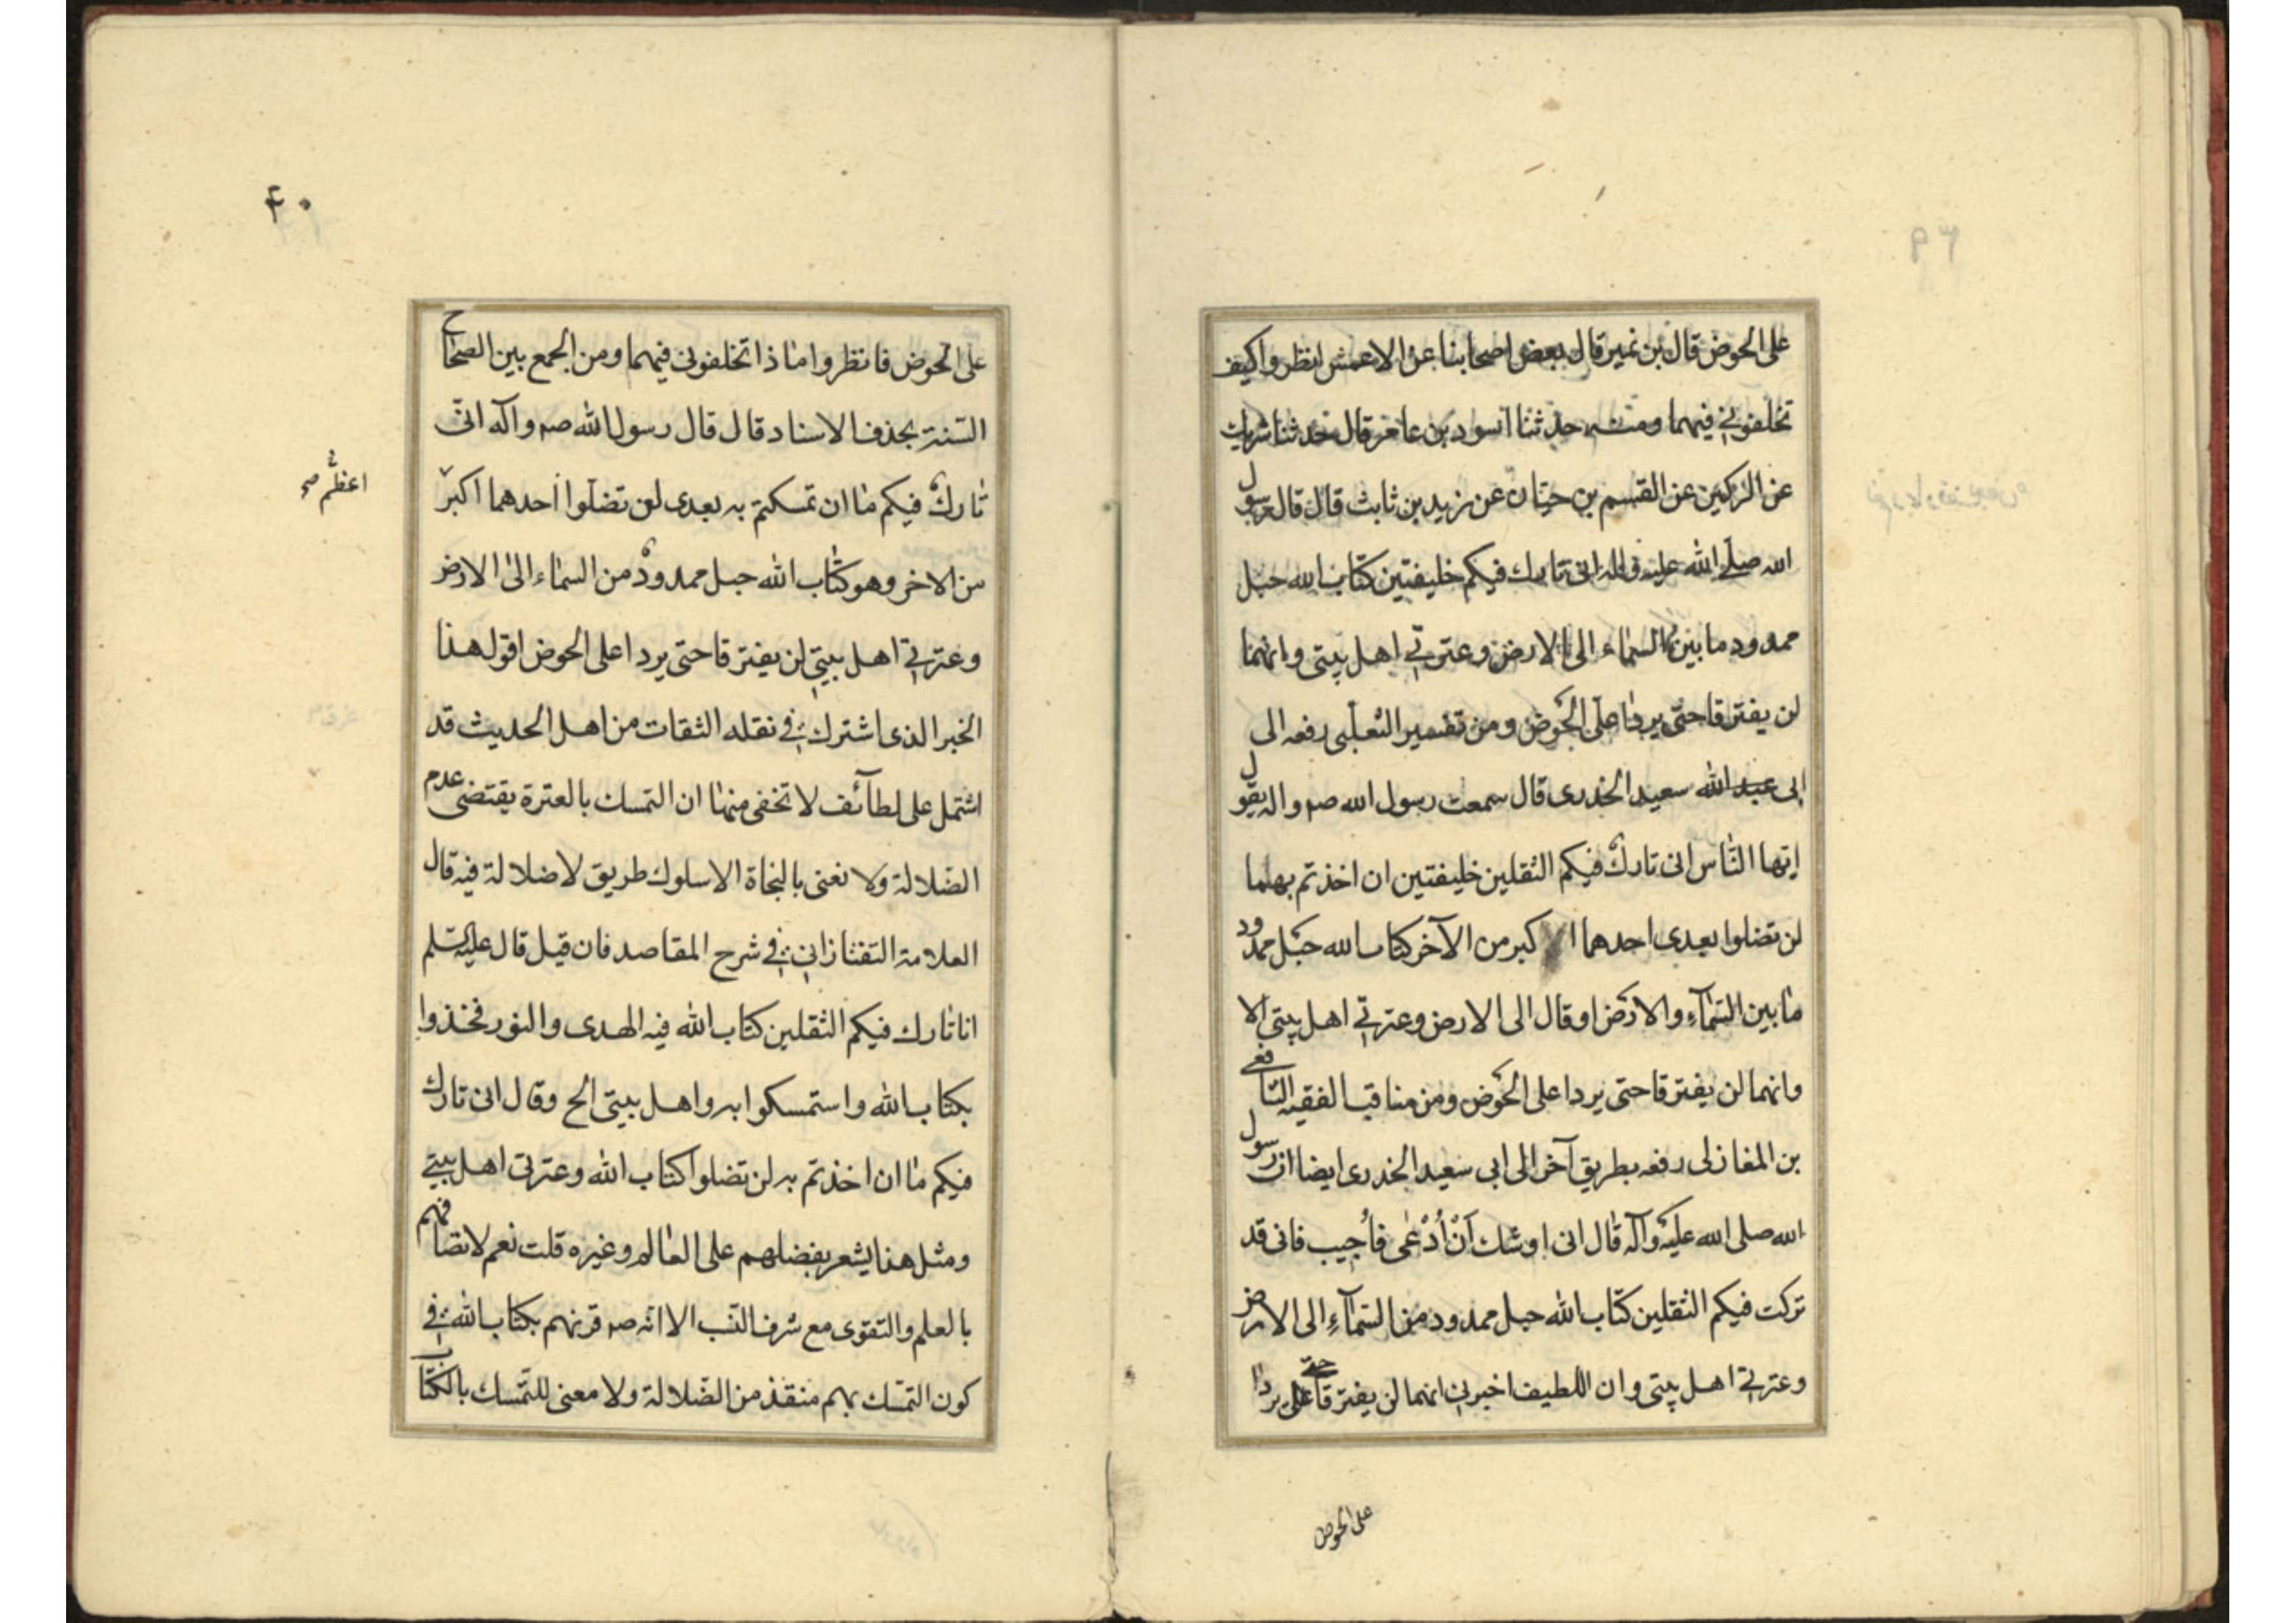 على الحوض قال بن نمير قال بعض اصحابنا عن الاعمش انظروا كيف
تخلفوني فيهما ومنه حدثنا اسود بن عامر قال حدثنا شريك
عن الركين عن القسم بن حيتان عن زيد بن ثابت قال قال رسول
الله صلى الله عليه واله انى تارك فيكم خليفتين كتاب الله حبل
ممدود ما بين السماء الى الارض وعترتي اهل بيتى وانهما
لن يفترقا حتى يردا على الحوض ومن تفسير الثعلبى رفعه الى
ابى عبد الله سعيد الخدرى قال سمعت رسول الله صه واله يقول
ايها الناس انى تارك فيكم الثقلين خليفتين ان اخذتم بهما
لن تضلوا بعدى احدهما اكبر من الآخر كتاب الله حبل ممدود
ما بين السمآء والارض او قال الى الارض وعترتي اهل بيتى الا
وانهما لن يفترقا حتى يردا على الحوض ومن مناقب الفقيه الشافعي
بن المغازلى رفعه بطريق آخر الى ابى سعيد الخدرى ايضا ان رسول
الله صلى الله عليه وآله قال انى اوشك أن أدعى فأجيب فانى قد
تركت فيكم الثقلين كتاب الله حبل ممدود من السمآء الى الارض
وعترتي اهل بيتى وان اللطيف اخبرني انهما لن يفترقا حتى يردا على
على الحوض
۴۰
على الحوض فانظروا ماذا تخلفونى فيهما ومن الجمع بين الصحاح
الستة بحذف الاسناد قال قال رسول الله صه وآله انى
تارك فيكم ما ان تمسكتم به بعدى لن تضلوا احدهما اكبر
اعظم صح
من الاخر وهو كتاب الله حبل ممدود من السماء الى الارض
وعترتي اهل بيتي لن يفترقا حتى يردا على الحوض اقول هذا
الخبر الذى اشترك في نقله الثقات من اهل الحديث قد
اشتمل على لطآئف لا تخفى منها ان التمسك بالعترة يقتضى عدم
الضلالة ولا نعنى بالنجاة الا سلوك طريق لا ضلالة فيه قال
العلامة التفتازاني في شرح المقاصد فان قيل قال عليه السلم
انا تارك فيكم الثقلين كتاب الله فيه الهدى والنور فخذوا
بكتاب الله واستمسكوا به واهل بيتى الح وقال انى تارك
فيكم ما ان اخذتم به لن تضلوا كتاب الله وعترتى اهل بيتي
ومثل هذا يشعر بفضلهم على العالم وغيره قلت نعم لاتصافهم
بالعلم والتقوى مع شرف النسب الا انه صه قرنهم بكتاب الله في
كون التمسك بهم منقذ من الضلالة ولا معنى للتمسك بالكتاب